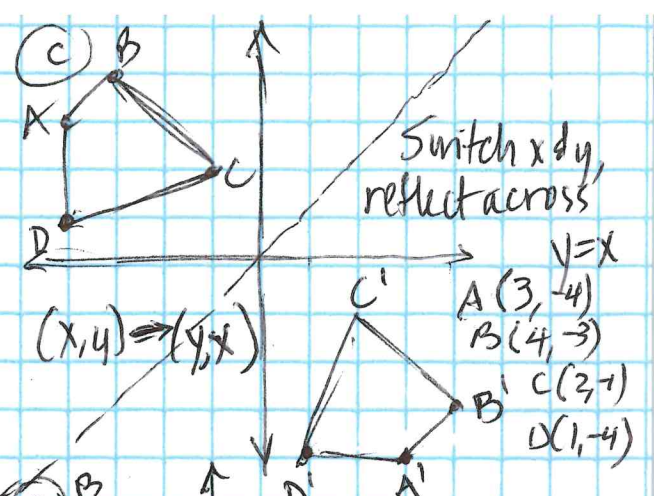 C
B
A
C
D
Switch x & y,
reflect across
y=x
(x,y)⇒(y,x)
C'
A(3,-4)
B(4,-3)
B'
C(2,-1)
D(1,-4)
D'
A'
B